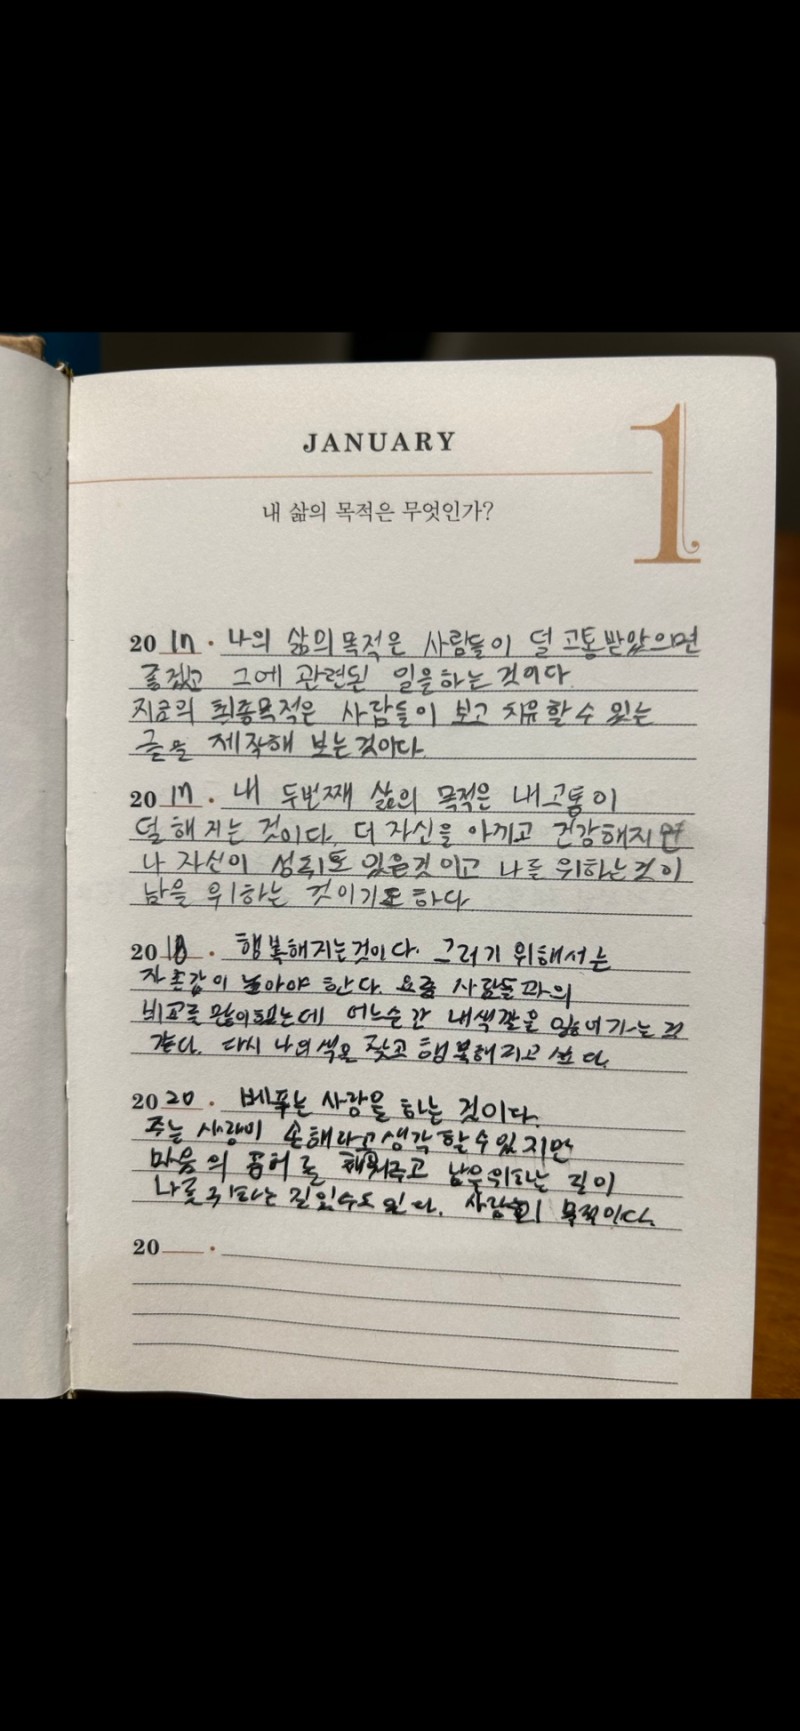 JANUARY
1
내 삶의 목적은 무엇인가?
20 17 · 나의 삶의 목적은 사람들이 덜 고통받았으면
좋겠고 그에 관련된 일을하는 것이다
최종목적은 사람들이 보고 치유할 수 있는
글을 제작해 보는것이다.
20 17 · 내 두번째 삶의 목적은 내고통이
덜 해 지는 것이다. 더 자신을 아끼고 건강해지면
나 자신이 성취도 있을것 이고 나를 위하는것이
남을 위하는 것이기도 하다
20 18 · 행복해지는것이다. 그러기 위해서는
자존감이 높아야 한다. 요즘 사람들과의
비교를 많이했는데 어느순간 내색깔을 잃어가는 것
같다. 다시 나의색을 찾고 행복해지고 싶다.
2020 · 베푸는 사랑을 하는 것이다.
주는 사랑이 손해라고생각 할수있지만
마음의 공허를 채워주고 남을위하는 길이
나를위하는 길일수도 있다. 목적이다.
20 ·